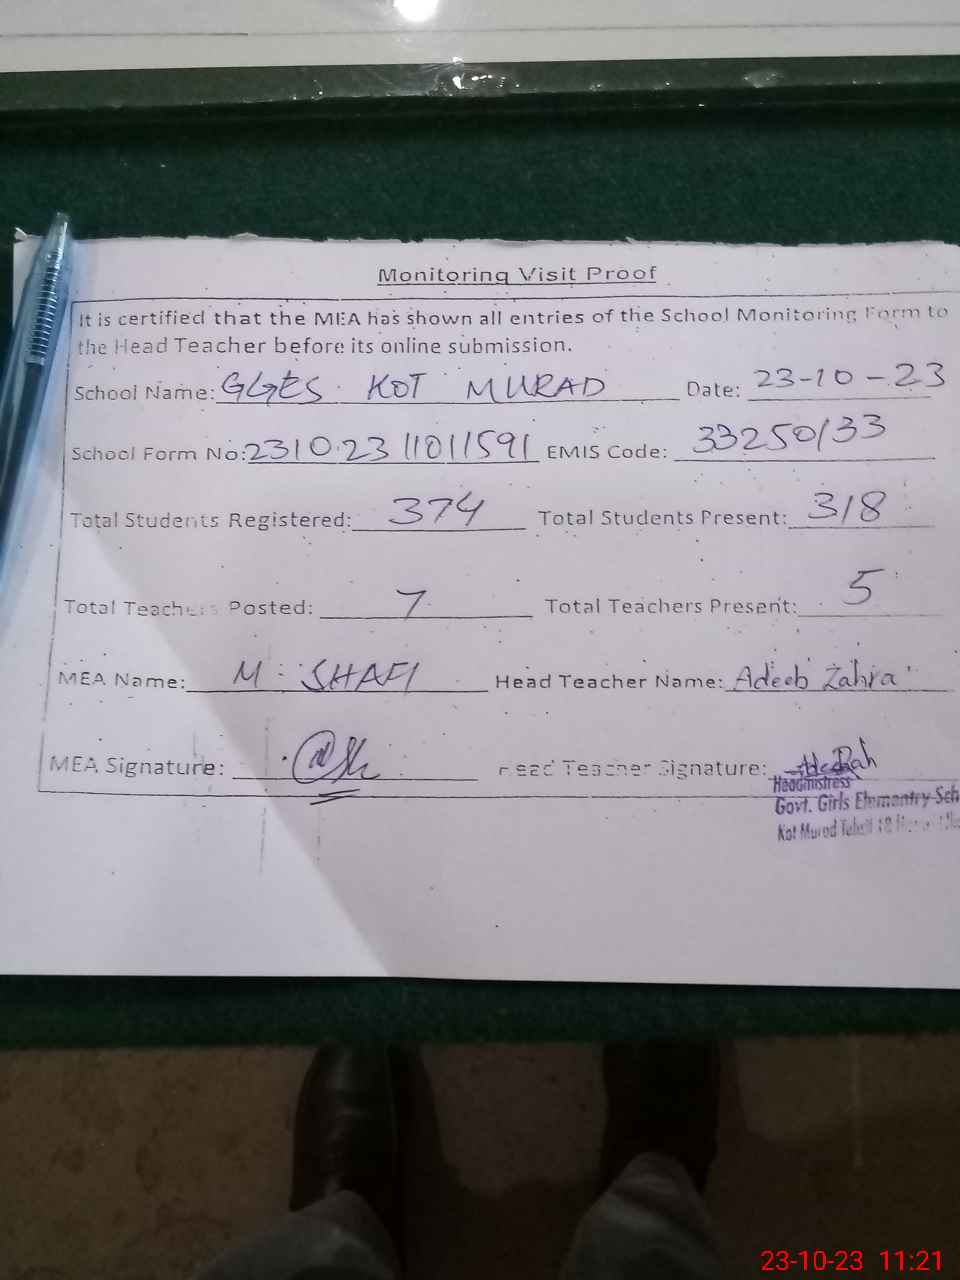 Monitoring Visit Proof
It is certified that the MEA has shown all entries of the School Monitoring Form to
the Head Teacher before its online submission.
School Name: GGES KOT MURAD Date: 23-10-23
School Form No: 231023 11011591 EMIS Code: 33250133
Total Students Registered: 374 Total Students Present: 318
Total Teachers Posted: 7 Total Teachers Present: 5
MEA Name: M. SHAFI Head Teacher Name: Adeeb Zahra
MEA Signature: Head Teacher Signature:
Headmistress
Govt. Girls Elementry Sch
Kot Murad
23-10-23 11:21